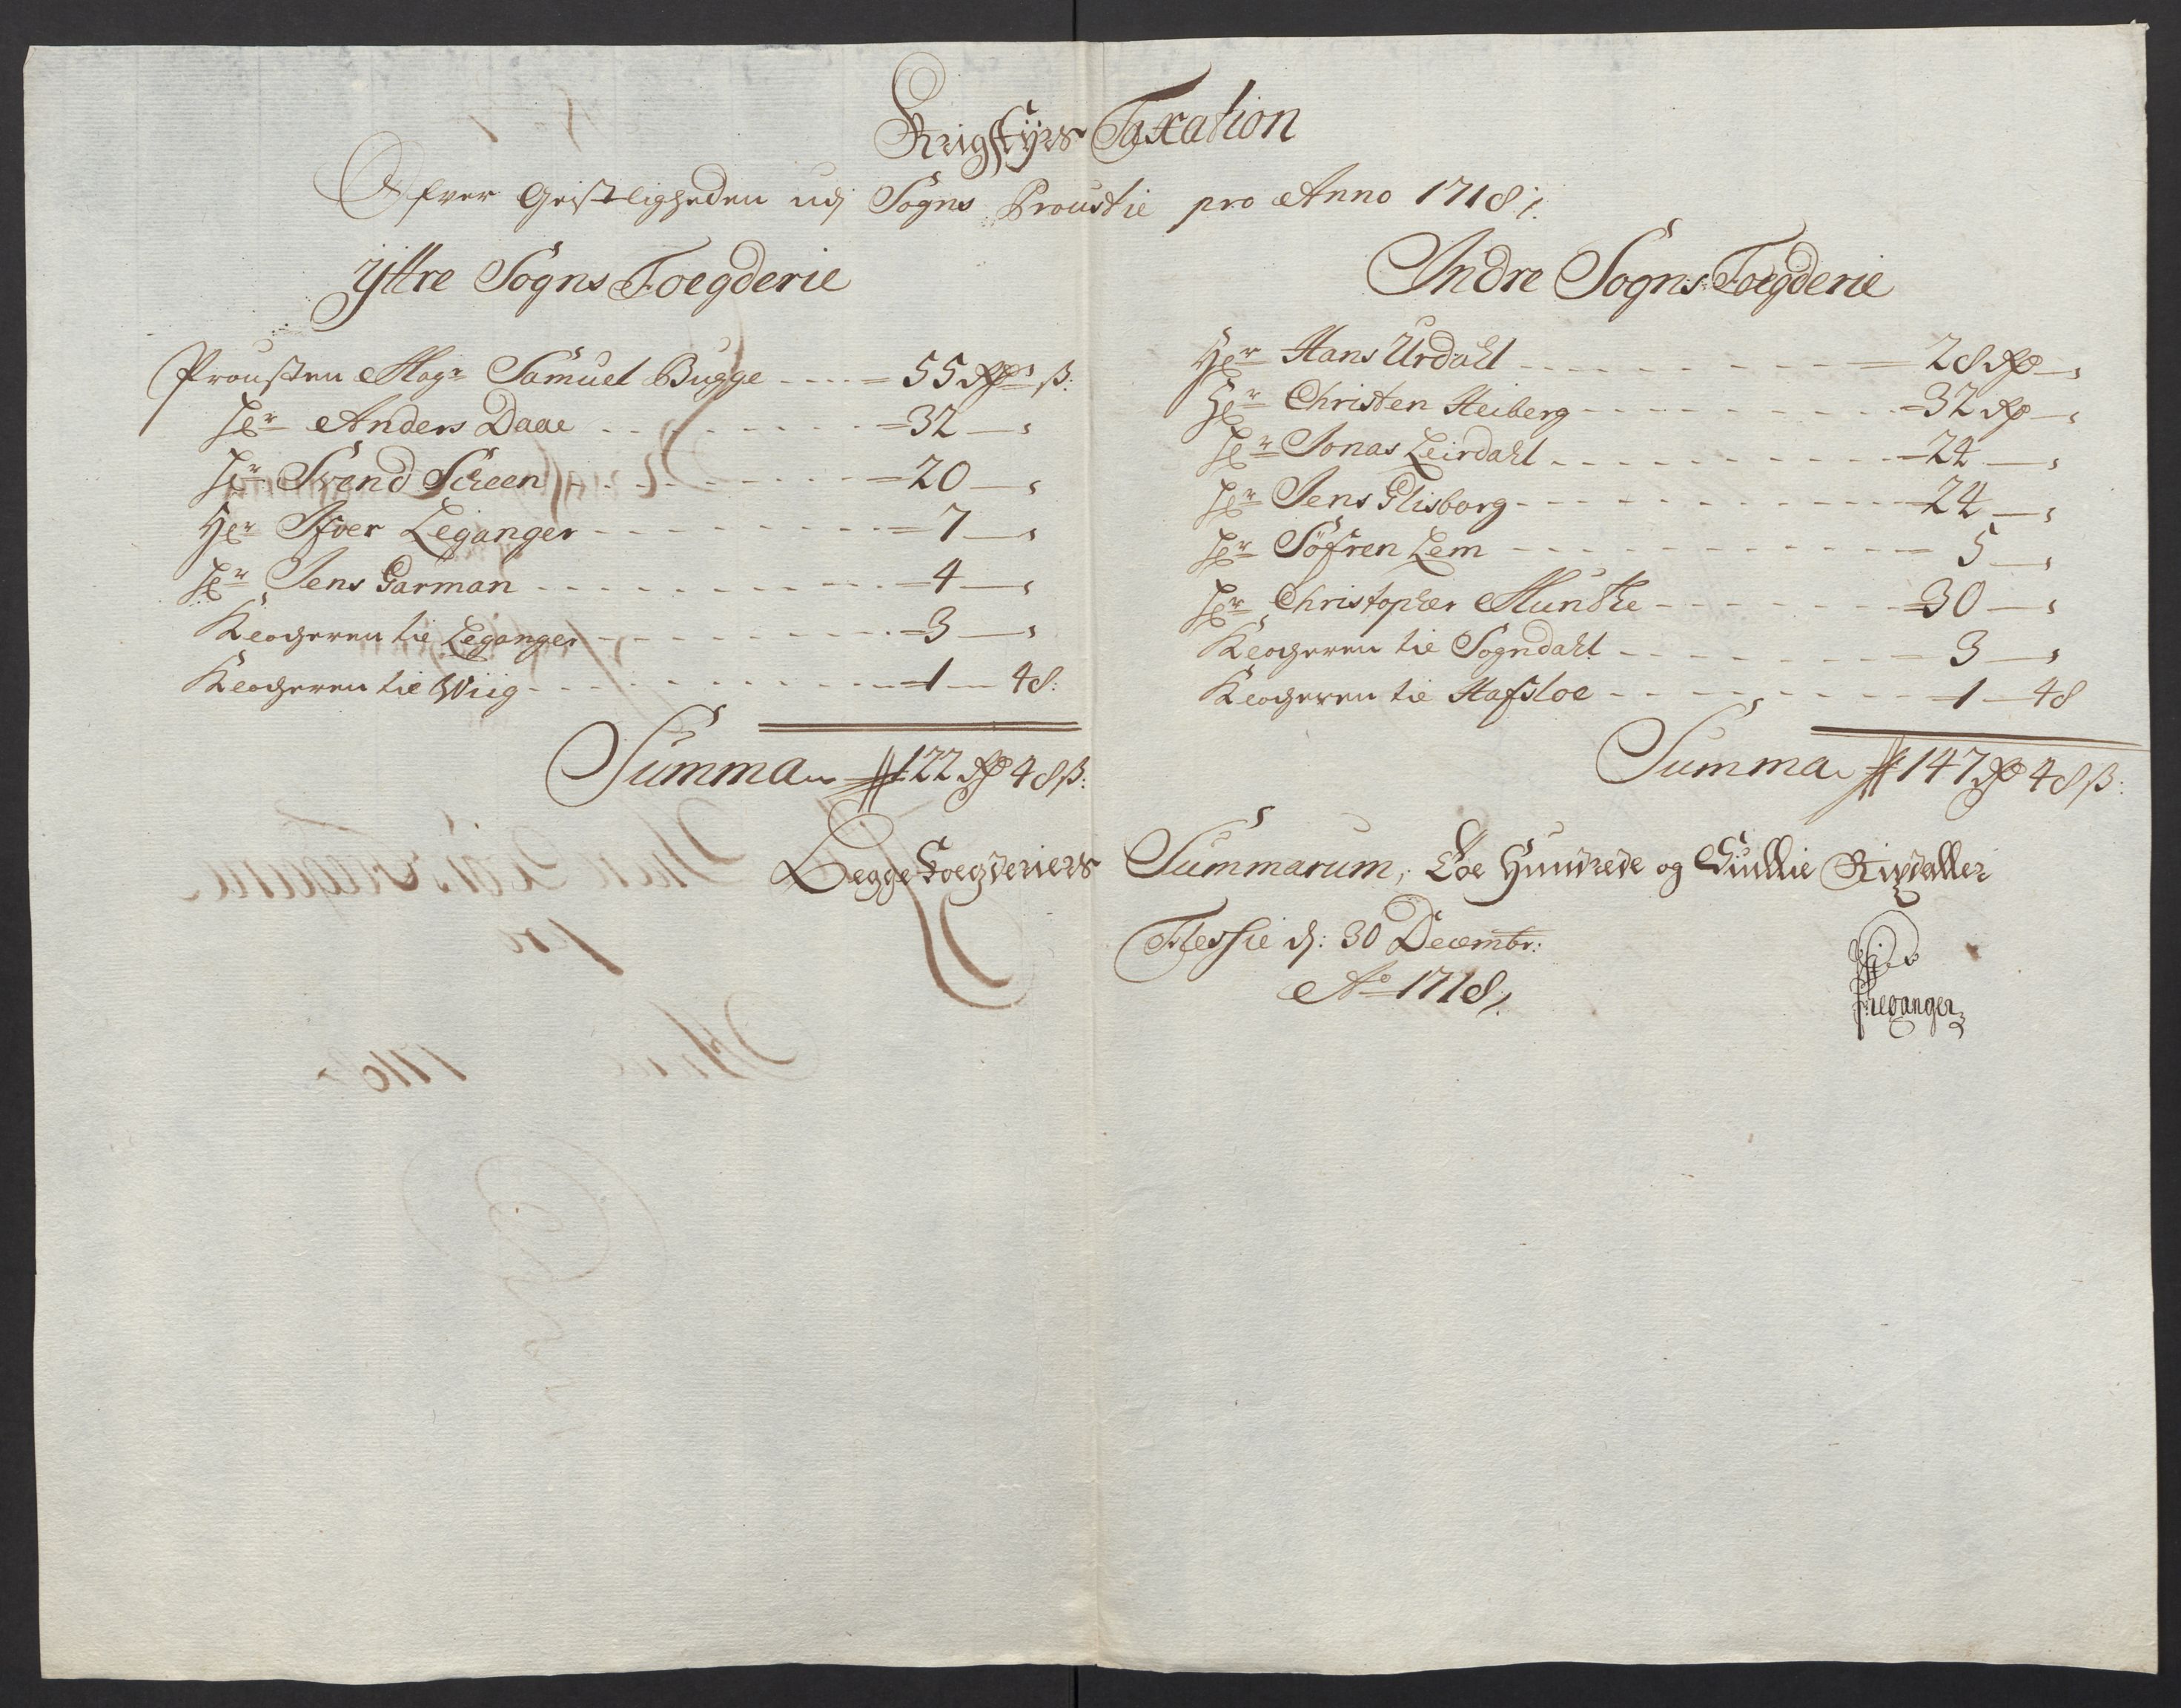 Krigstyrs Taxation
Ofver Geistligheden udj Sogns Proustie pro Anno 1718 /.
Yttre Sogns Foegderie
Prousten Magr Samuel Bugge - - - - 55 Rdr ß:
Hr Anders Daae - - - - 32 — "
Hr Svend Scheen - - - - 20 — "
Hr Ifver Leganger - - - - 7 — "
Hr Jens Garman - - - - 4 — "
Klocheren til Leganger - - - - 3 — "
Klocheren til Wiig - - - - 1 — 48:
Summa 122 Rd 48 ß:
Indre Sogns Foegderie
Hr Hans Urdahl - - - - 28 Rd — "
Hr Christen Heiberg - - - - 32 Rd — "
Hr Jonas Leirdahl - - - - 24 — "
Hr Jens Glisborg - - - - 24 — "
Hr Söfren Lem - - - - 5 — "
Hr Christopher Munthe - - - - 30 — "
Klocheren til Sogndahl - - - - 3 — "
Klocheren til Hafsloe - - - - 1 — 48
Summa 147 Rd 48 ß:
Begge Foegderiers Summarum, Toe Hundrede og Rixdaller
d: 30 Decembr:
Ao 1718,